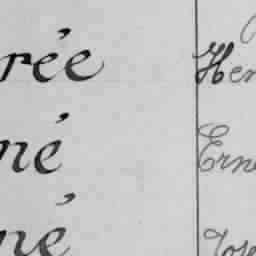 rée Hen
né Erne
né Jos